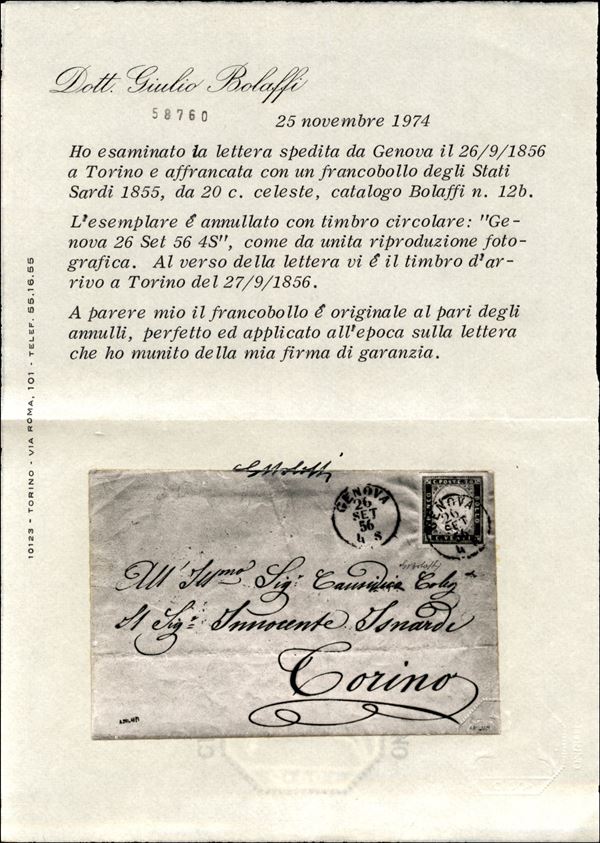 Dott. Giulio Bolaffi
58760
25 novembre 1974
Ho esaminato la lettera spedita da Genova il 26/9/1856
a Torino e affrancata con un francobollo degli Stati
Sardi 1855, da 20 c. celeste, catalogo Bolaffi n. 12b.
L'esemplare é annullato con timbro circolare: "Ge-
nova 26 Set 56 4S", come da unita riproduzione foto-
grafica. Al verso della lettera vi é il timbro d'ar-
rivo a Torino del 27/9/1856.
A parere mio il francobollo é originale al pari degli
annulli, perfetto ed applicato all'epoca sulla lettera
che ho munito della mia firma di garanzia.
10123 - TORINO - VIA ROMA, 101 - TELEF. 55.16.55
GENOVA
26
SET
56
4 S
GENOVA
26
SET
4
All' Illmo Sig:
Il Sigr Innocente Isnardi
Torino